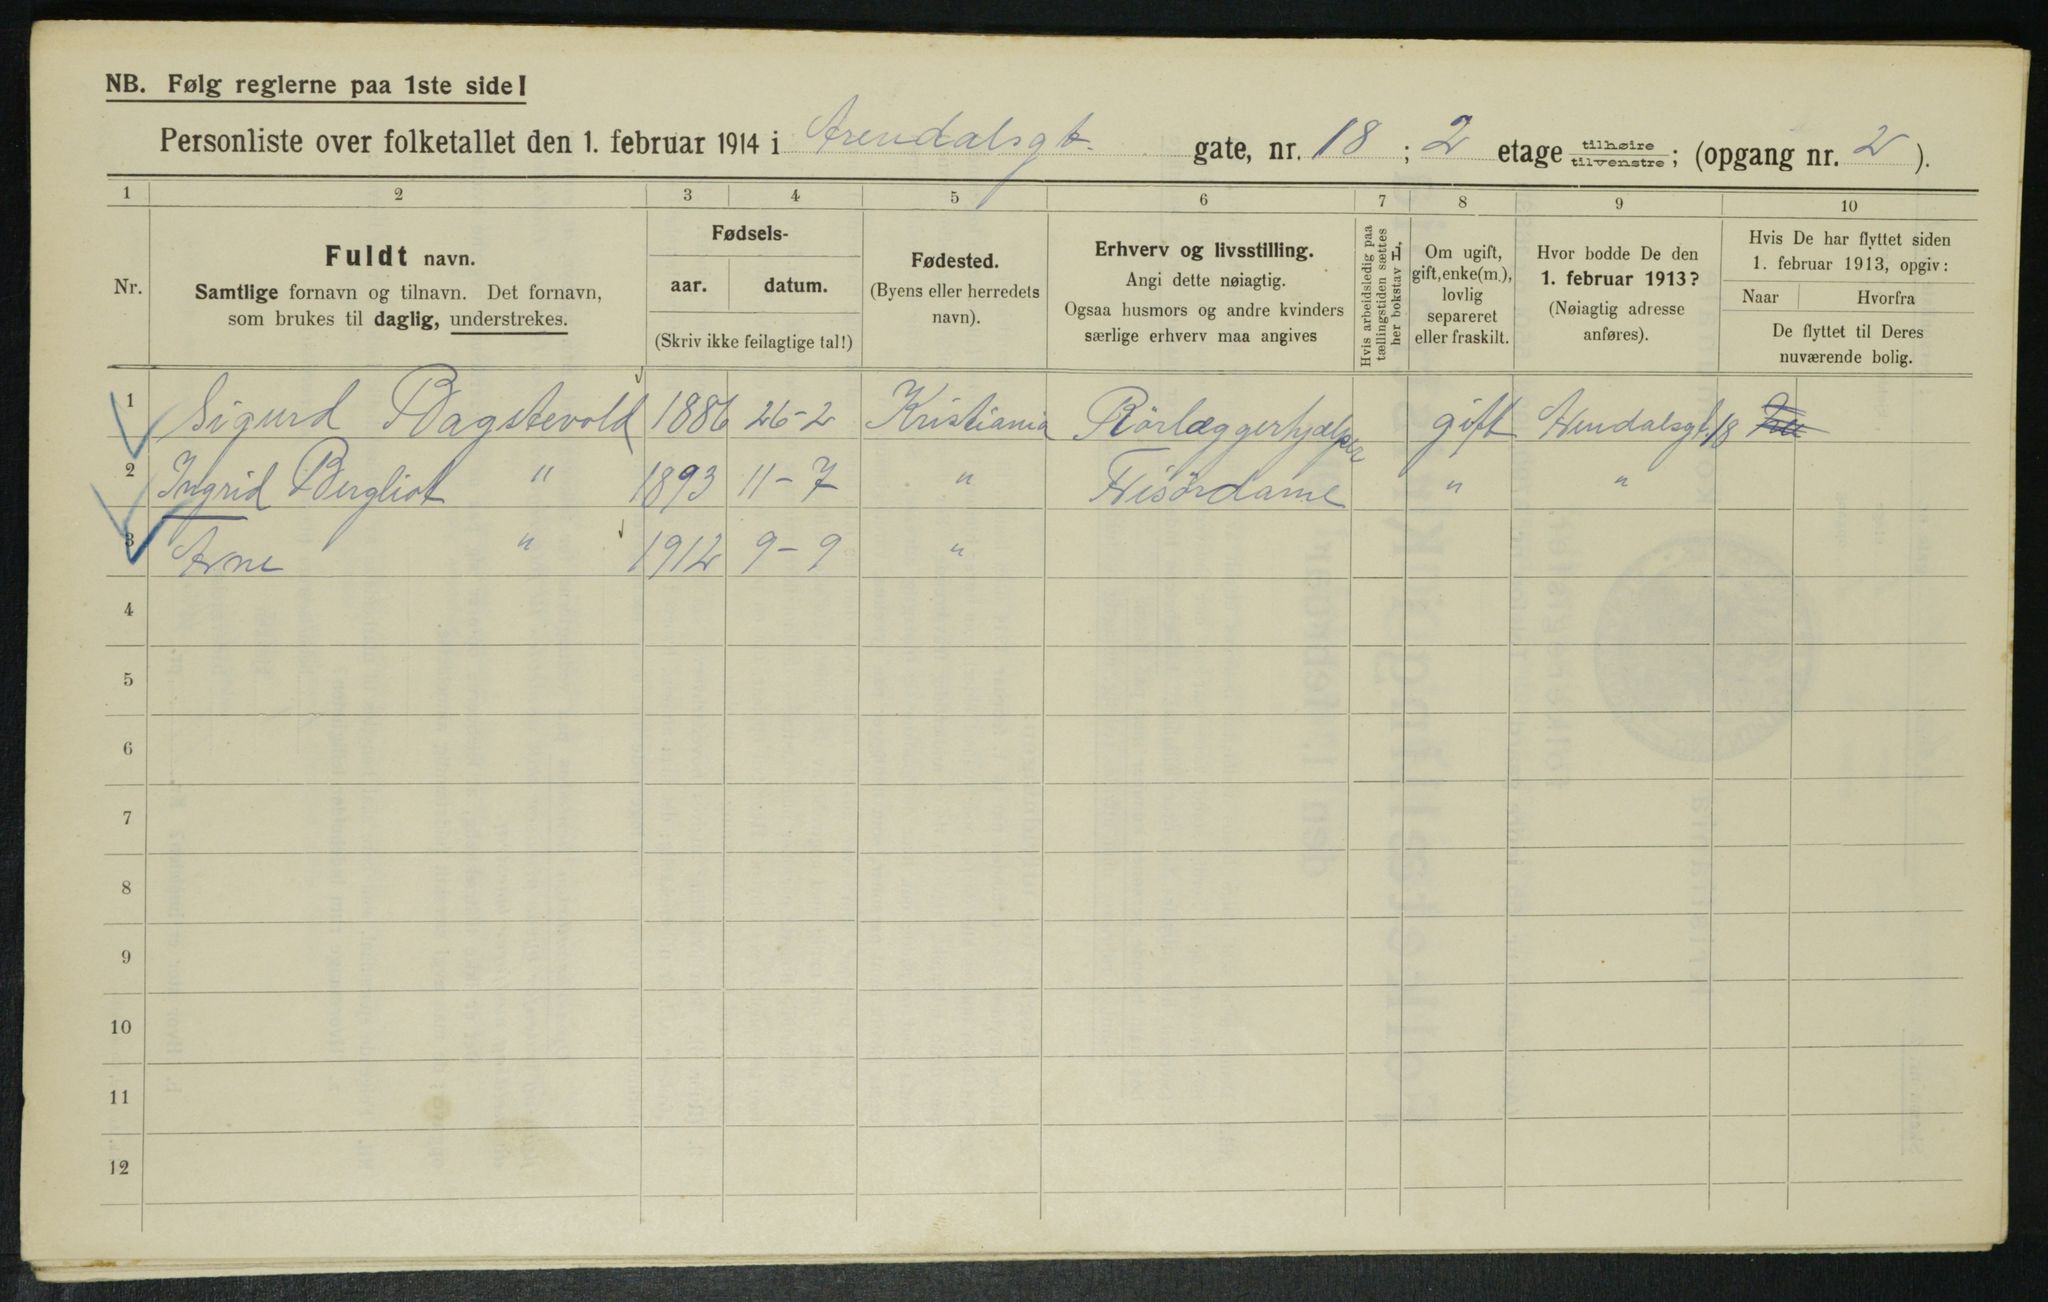 NB. Følg reglerne paa 1ste side!
Personliste over folketallet den 1. februar 1914 i Arendalsgt. gate, nr. 18 ; 2 etage tilhøire tilvenstre ; (opgang nr. 2 ).
1 2 3 4 5 6 7 8 9 10
Nr.
Fuldt navn.
Samtlige fornavn og tilnavn. Det fornavn,
som brukes til daglig, understrekes.
Fødsels-
aar. datum.
(Skriv ikke feilagtige tal!)
Fødested.
(Byens eller herredets
navn).
Erhverv og livsstilling.
Angi dette nøiagtig.
Ogsaa husmors og andre kvinders
særlige erhverv maa angives
Hvis arbeidsledig paa
tællingstiden sættes
her bokstav L.
Om ugift,
gift, enke(m.),
lovlig
separeret
eller fraskilt.
Hvor bodde De den
1. februar 1913?
(Nøiagtig adresse
anføres).
Hvis De har flyttet siden
1. februar 1913, opgiv:
Naar Hvorfra
De flyttet til Deres
nuværende bolig.
1 Sigurd Bagstevold 1886 26-2 Kristiania Rörlæggerhjælper gift Arendalsgt. 18
2 Ingrid Bergliot " 1893 11-7 " Frisördame " "
3 Arne " 1912 9-9 "
4
5
6
7
8
9
10
11
12